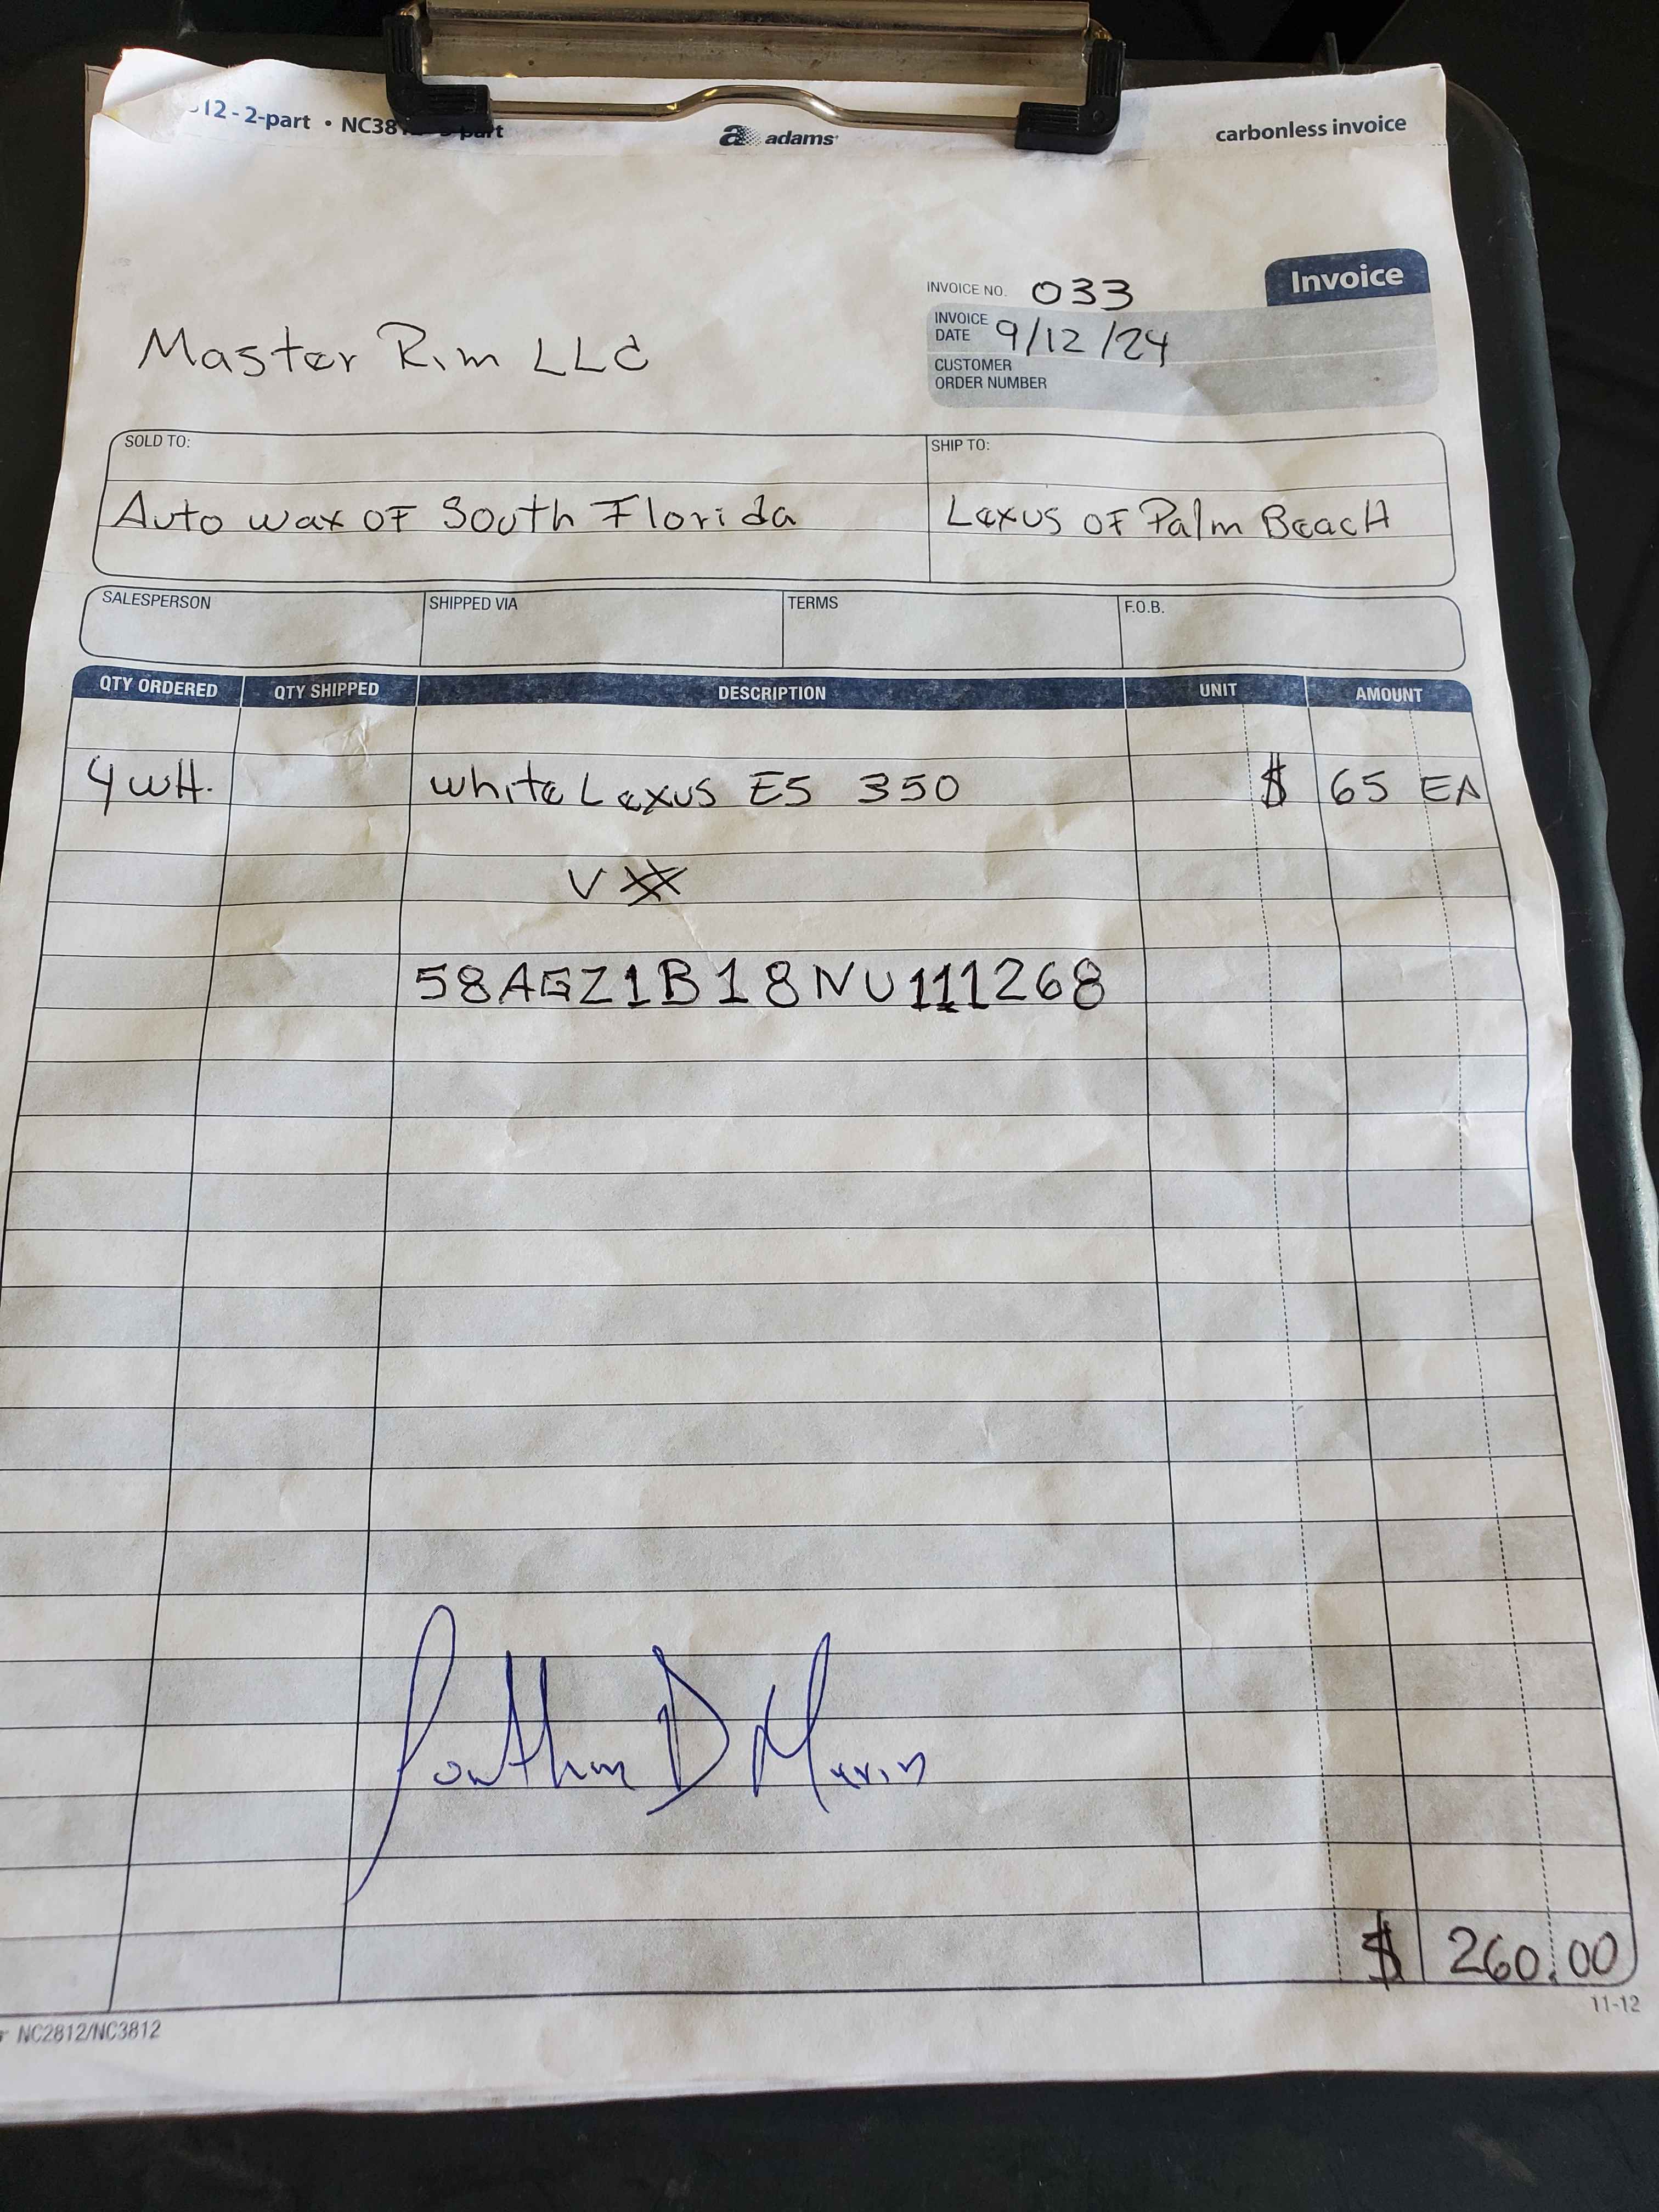 12 - 2-part • NC38
part
adams
carbonless invoice
Invoice
INVOICE NO. 033
INVOICE DATE 9/12/24
CUSTOMER ORDER NUMBER
Master Rim LLC
SOLD TO:
Auto wax OF South Florida
SHIP TO:
Lexus OF Palm BeacH
SALESPERSON SHIPPED VIA TERMS F.O.B.
QTY ORDERED QTY SHIPPED DESCRIPTION UNIT AMOUNT
4 WH. white Lexus ES 350 $ 65 EA
V #
58AGZ1B18NU111268
Jonathan D Marin
$ 260.00
11-12
NC2812/NC3812